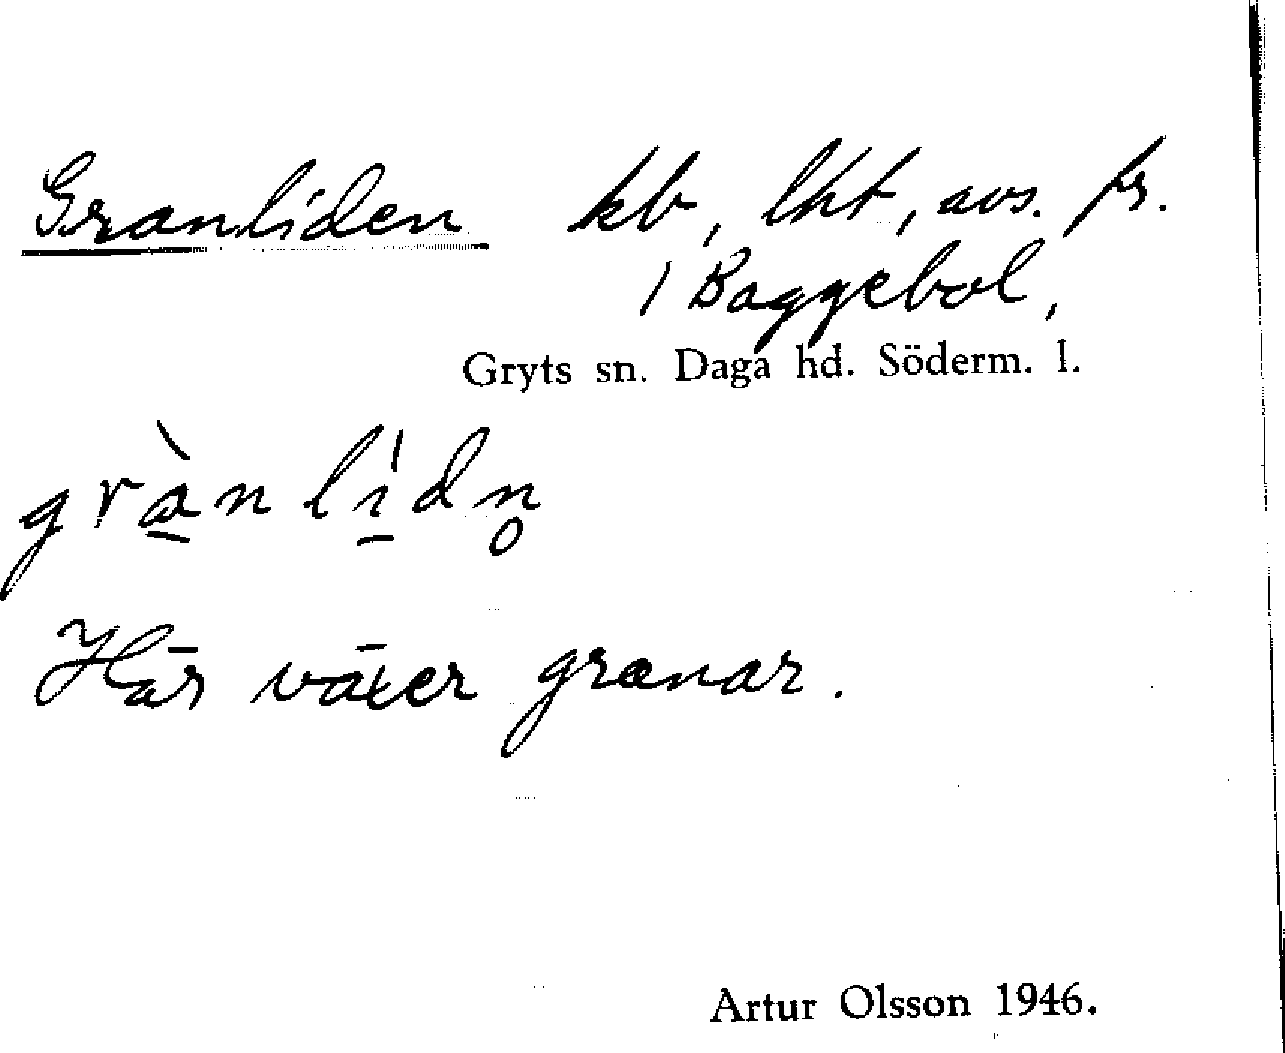 Granliden kb, lht, avs. fr.
1 Baggebol,
Gryts sn. Daga hd. Söderm. l.
grà̱nlı̱̍dn̥
Här växer granar.
Artur Olsson 1946.